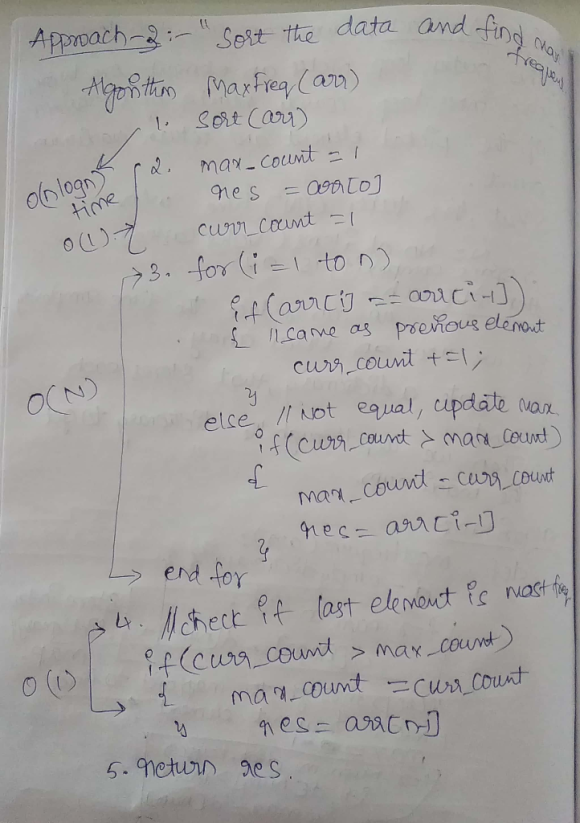 Approach-3 :- "Sort the data and find max
frequent
Algorithm MaxFreq(arr)
1. Sort(arr)
O(nlogn)
time
2. max_count = 1
res = arr[0]
O(1)→
curr_count = 1
3. for(i = 1 to n)
if(arr[i] == arr[i-1])
{ // same as previous element
curr_count += 1;
}
O(N)
else // Not equal, update max
if(curr_count > max_count)
{
max_count = curr_count
res = arr[i-1]
}
end for
4. // check if last element is most freq
if(curr_count > max_count)
O(1)
{ max_count = curr_count
} res = arr[n-1]
5. return res.